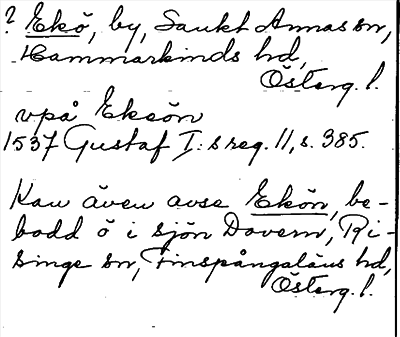 ? Ekö, by, Sankt Annas sn,
Hammarkinds hd,
Österg. l.
vpå Eksön
1537 Gustaf I:s reg. 11, s. 385.
Kan även avse Ekön, be-
bodd ö i sjön Dovern, Ri-
singe sn, Finspångaläns hd,
Österg. l.